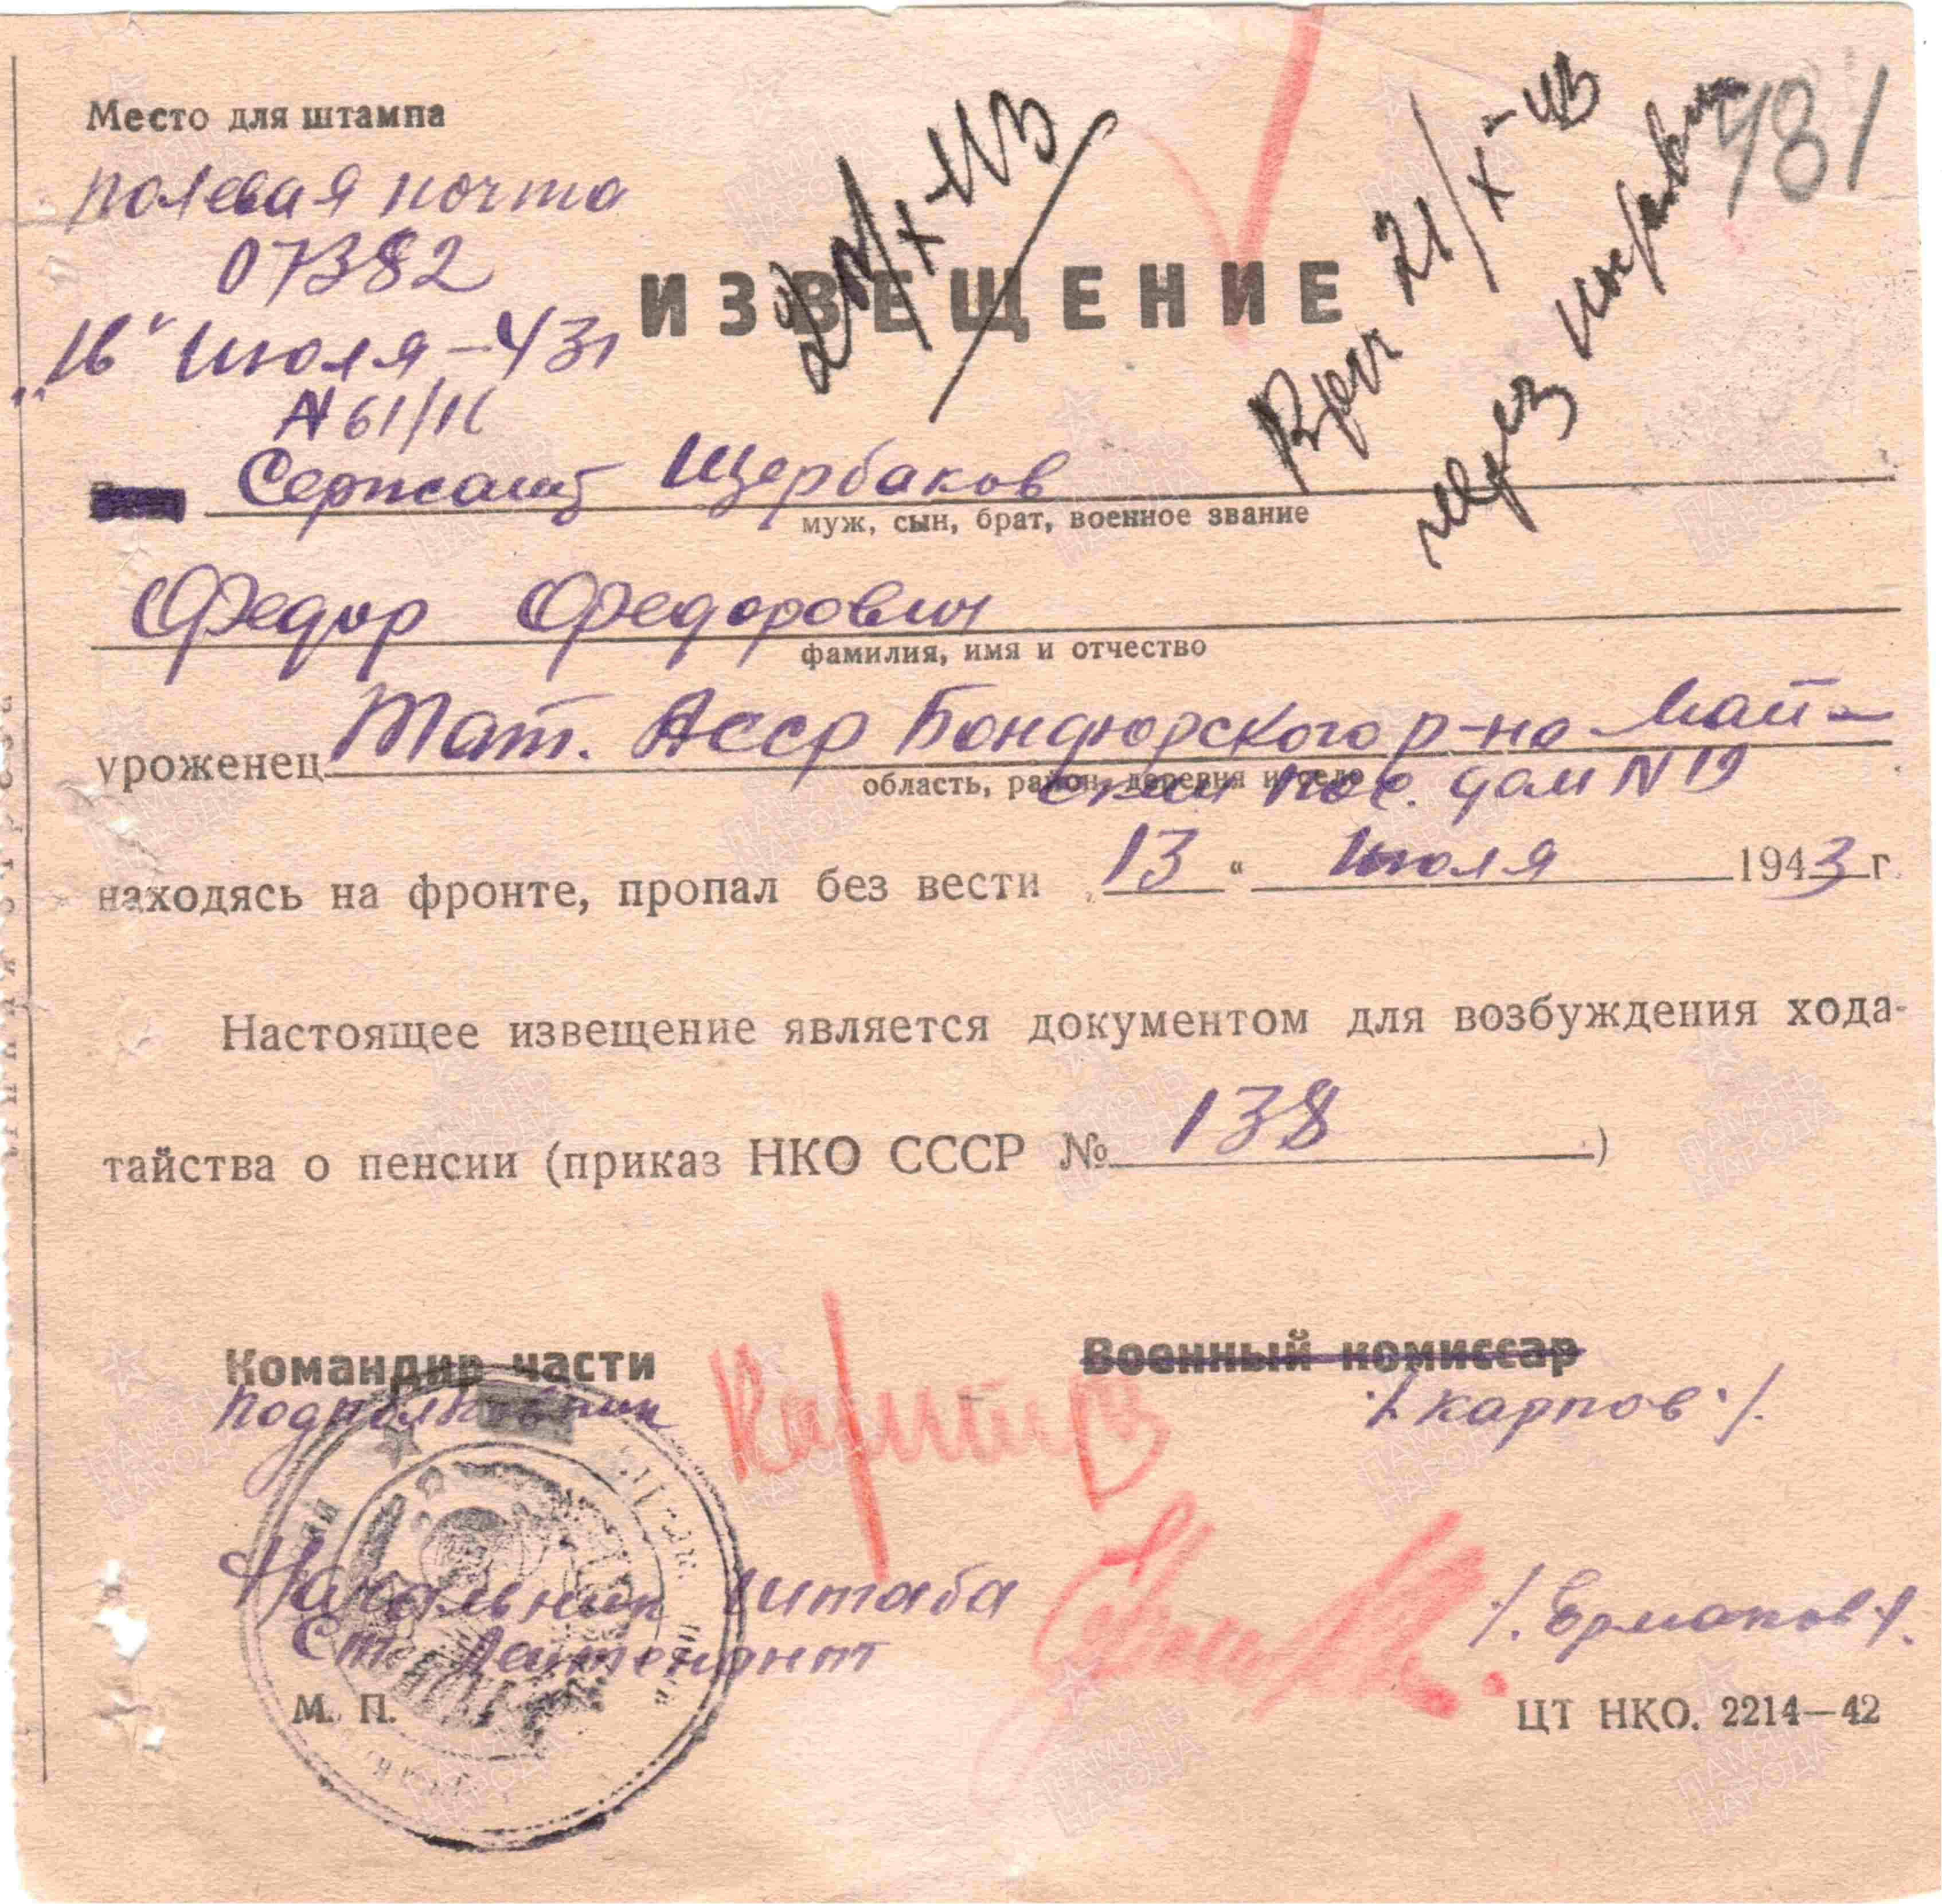 Место для штампа
полевая почта
07382
"16" Июля-43г
N 61/11
21/X-43
481
ИЗВЕЩЕНИЕ
21/X-43
через
Сержант Щербаков
муж, сын, брат, военное звание
Федор Федорович
фамилия, имя и отчество
уроженец Тат. Асср Бондюрского р-на Май-
область, район, деревня и село
ский пос. дом N 19
находясь на фронте, пропал без вести „13“ Июля 1943 г.
Настоящее извещение является документом для возбуждения хода-
тайства о пенсии (приказ НКО СССР № 138)
Командир части
Военный комиссар
Подполковник Карпов /Карпов/.
Начальник штаба
Ст. Лейтенант /.Ермаков/.
М. П.
ЦТ НКО. 2214—42
ПАМЯТЬ НАРОДА